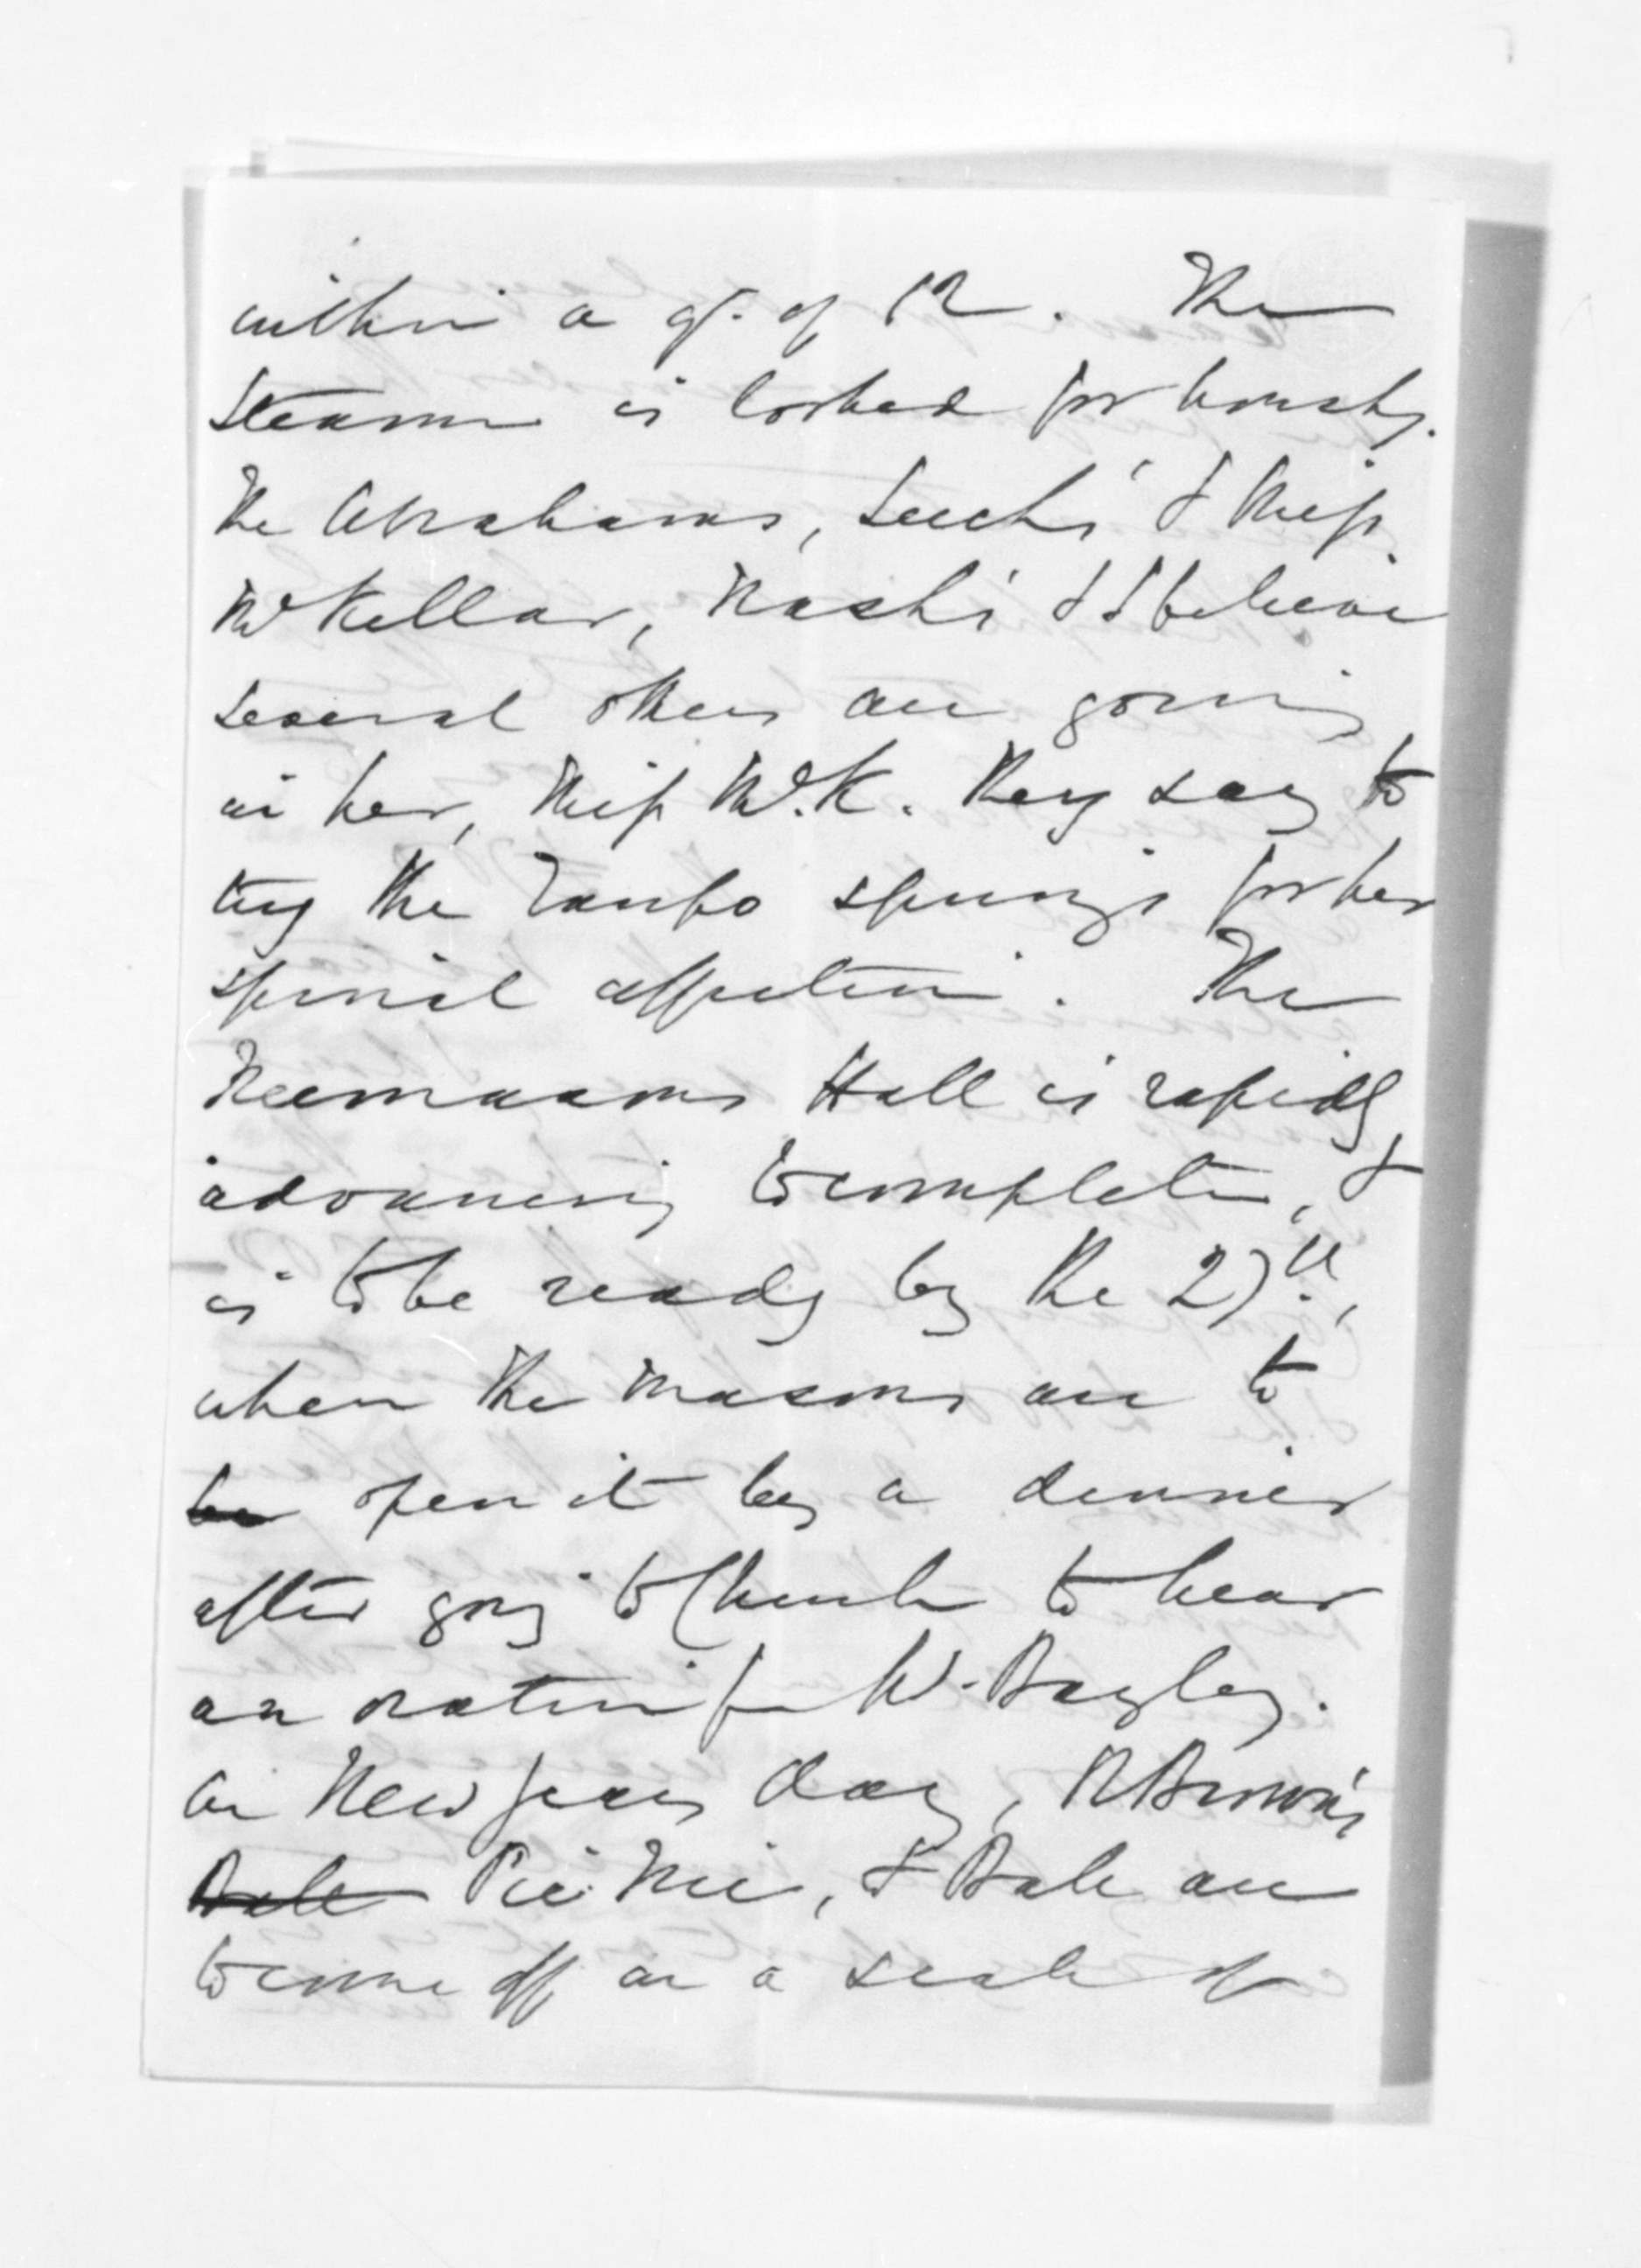 within a qr. of 12. The
Steamer is looked for hourly.
The Abrahams, Leech's & Miss
McKellar, Nash's & I believe
several others are going
in her, Miss McK. they say to
try the Taupo springs for her
spinal affection. The
Freemasons Hall is rapidly
advancing to completion, &
is to be ready by the 27th.,
when the masons are to
be open it by a dinner
after going to Church to hear
an oration fm W. Bagley.
On New years day, R Brown's
Ball Pic Nic, & Ball are
to come off on a scale of